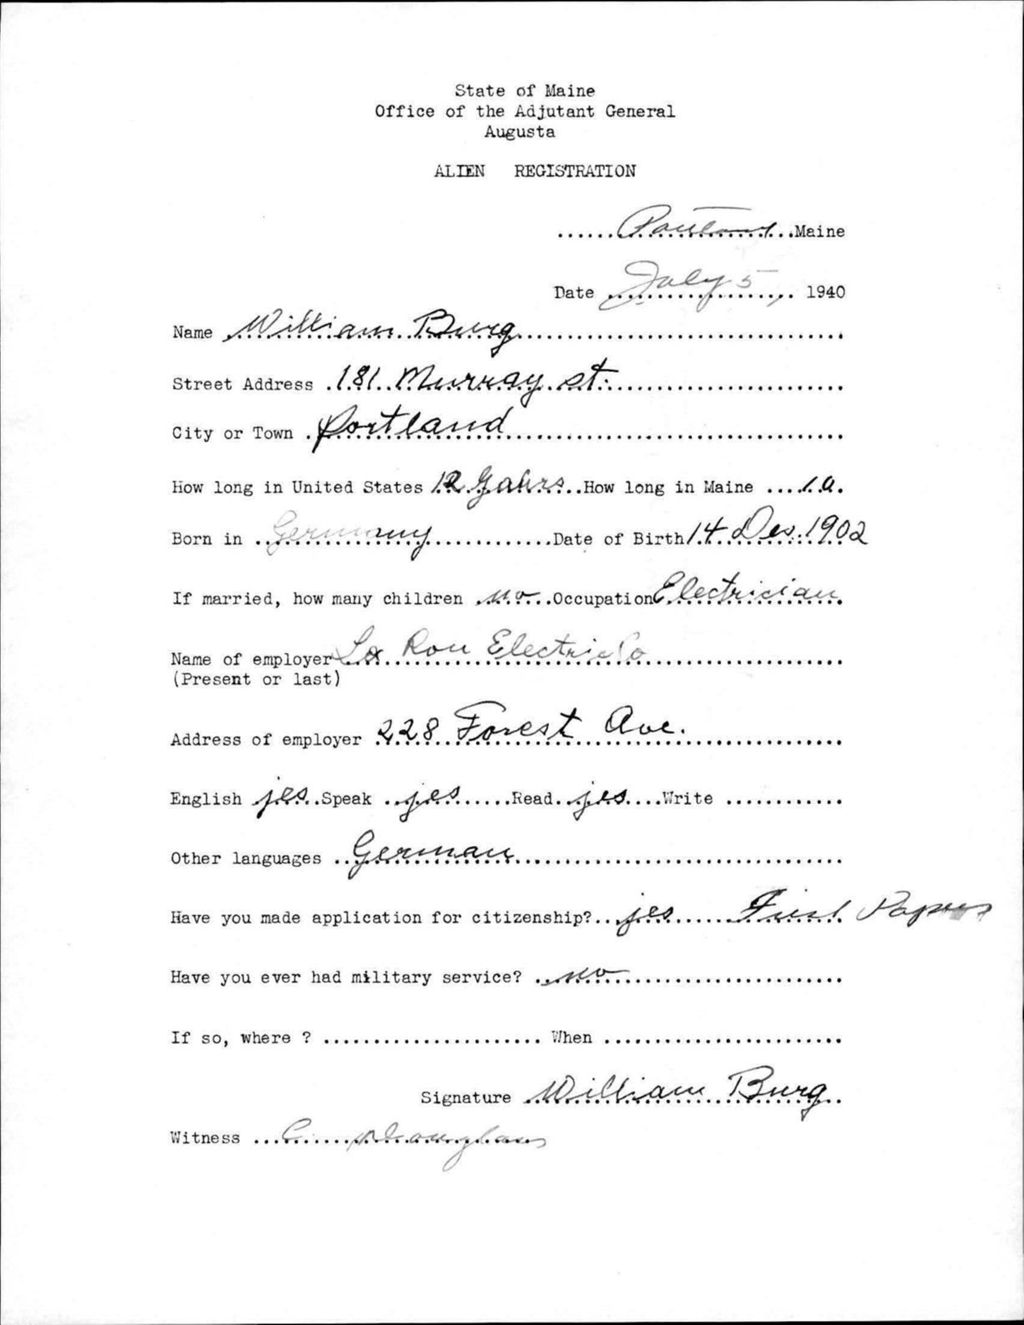 State of Maine
Office of the Adjutant General
Augusta
ALIEN REGISTRATION
Portland Maine
Date July 5, 1940
Name William Burg
Street Address 181 Murray st.
City or Town Portland
How long in United States 12 Yahrs How long in Maine
Born in Germany Date of Birth 14 Des. 1902
If married, how many children no Occupation Electrician
Name of employer La Rou Electric Co
(Present or last)
Address of employer 228 Forest Ave.
English jes Speak jes Read jes Write
Other languages German
Have you made application for citizenship? jes First Papers
Have you ever had military service? no
If so, where ? When
Signature William Burg
Witness C.